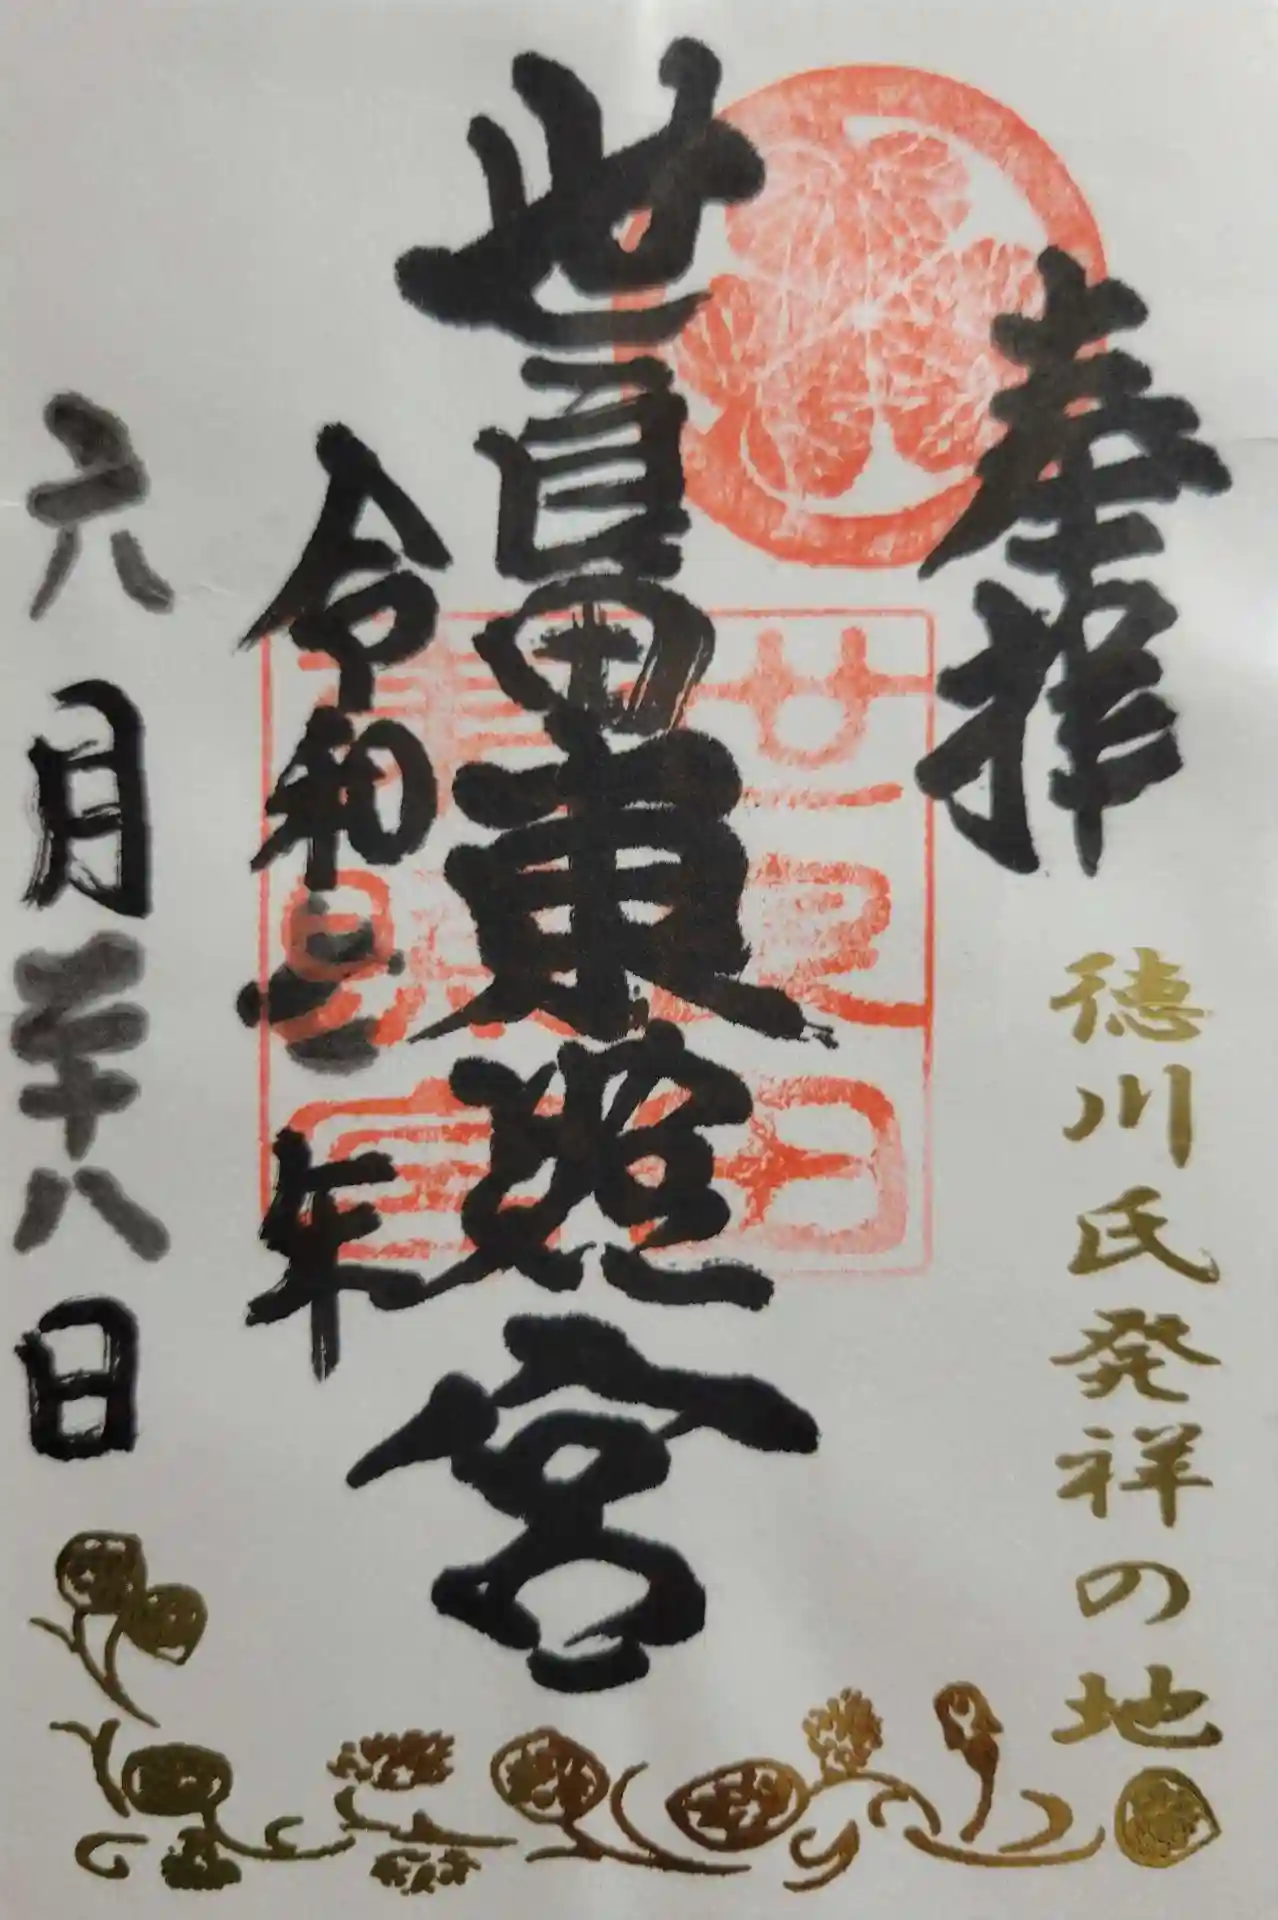 奉拝
徳川氏発祥の地
世良田東照宮
世良田
東照宮
令和三年
六月二十八日